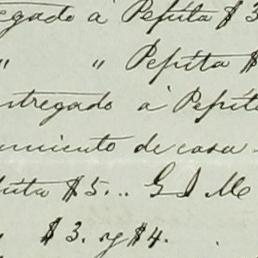 egado á Pepita $3
" " Pepita $
ntregado á Pepita
umiento de casa
ita $5... G I M
$3. y $4.